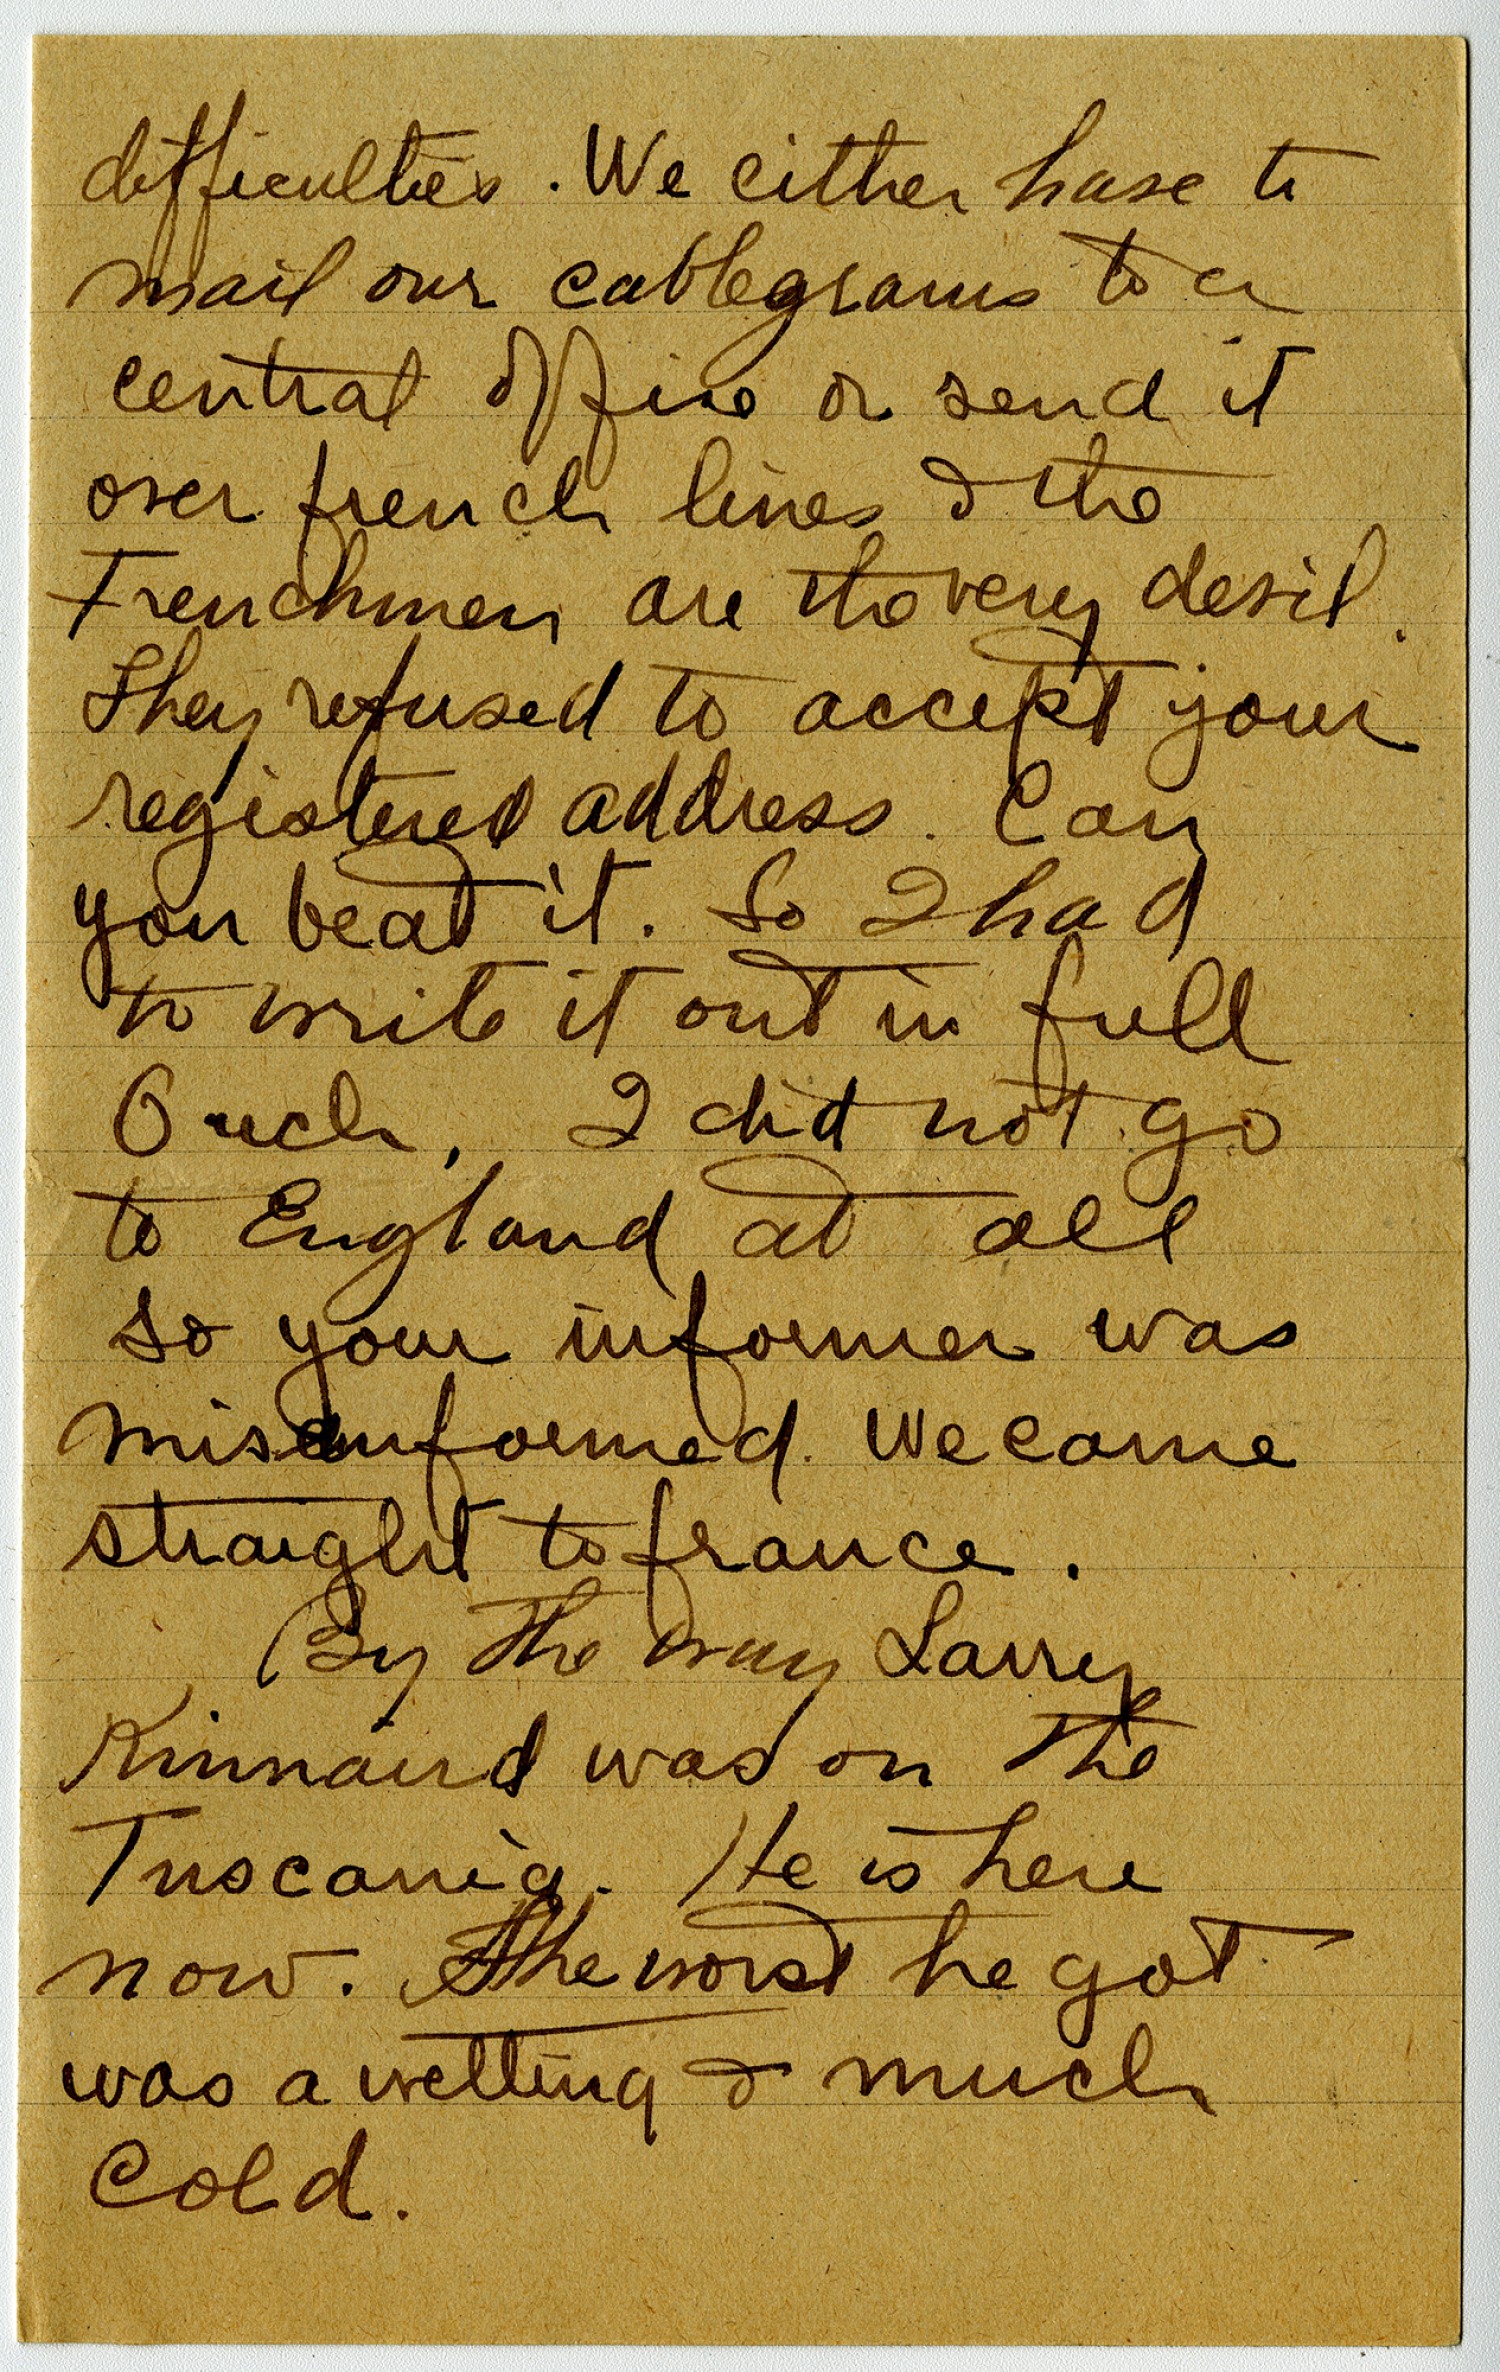 difficulties. We either have to
mail our cablegrams to a
central office or send it
over french lines & the
Frenchmen are the very devil.
They refused to accept your
registered address. Can
you beat it. So I had
to write it out in full
Ouch. I did not go
to England at all
so your informer was
misinformed. We came
straight to france.
By the way Larry
Kinnaird was on the
Tuscania. He is here
now. The worst he got
was a wetting & much
cold.